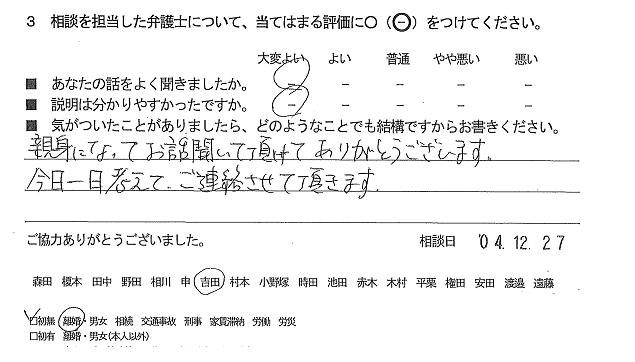 3 相談を担当した弁護士について、当てはまる評価に○（⊖）をつけてください。
大変よい よい 普通 やや悪い 悪い
■ あなたの話をよく聞きましたか。 － － － － －
■ 説明は分かりやすかったですか。 － － － － －
■ 気がついたことがありましたら、どのようなことでも結構ですからお書きください。
親身になってお話聞いて頂けてありがとうございます。
今日一日考えて、ご連絡させて頂きます。
ご協力ありがとうございました。 相談日 '04.12.27
森田 榎本 田中 野田 相川 申 吉田 村本 小野塚 時田 池田 赤木 木村 平栗 権田 安田 渡邉 遠藤
□初無 離婚・男女 相続 交通事故 刑事 家賃滞納 労働 労災
□初有 離婚・男女(本人以外)